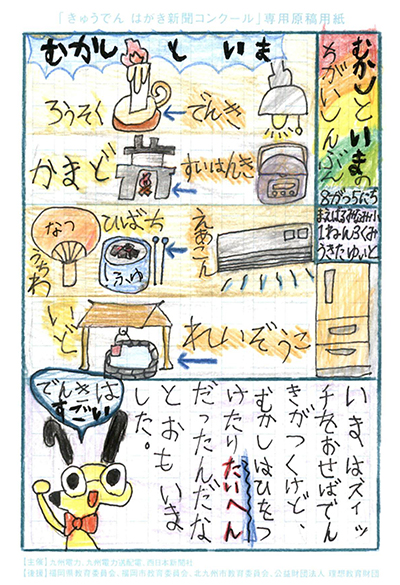 「きゅうでん はがき新聞コンクール」専用原稿用紙
むかしといまの
ちがいしんぶん
8がつ5にち
うきたゆいと
むかし と いま
ろうそく
でんき
かまど
すいはんき
なつ
うちわ
ひばち
ふゆ
えあこん
いど
れいぞうこ
でんきは
すごい
いまはスイッ
チをおせばでん
きがつくけど、
むかしはひをつ
けたりたいへん
だったんだな
とおもいま
した。
【主催】九州電力、九州電力送配電、西日本新聞社
【後援】福岡県教育委員会、福岡市教育委員会、北九州市教育委員会、公益財団法人 理想教育財団